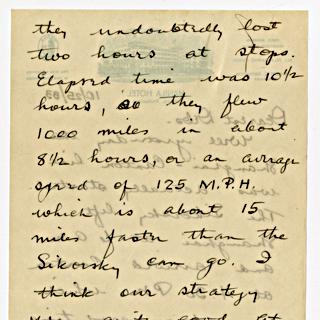 they undoubtedly lost
two hours at stops.
Elapsed time was 10½
hours, so they flew
1000 miles in about
8½ hours, or an average
speed of 125 M.P.H.
which is about 15
miles faster than the
Sikorsky can go. I
think our strategy
was quite good at